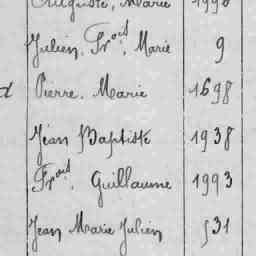 Auguste, Marie 1996
Julien, Frois, Marie 9
Pierre, Marie 1698
Jean Baptiste 1938
Frois, Guillaume 1993
Jean Marie Julien 531